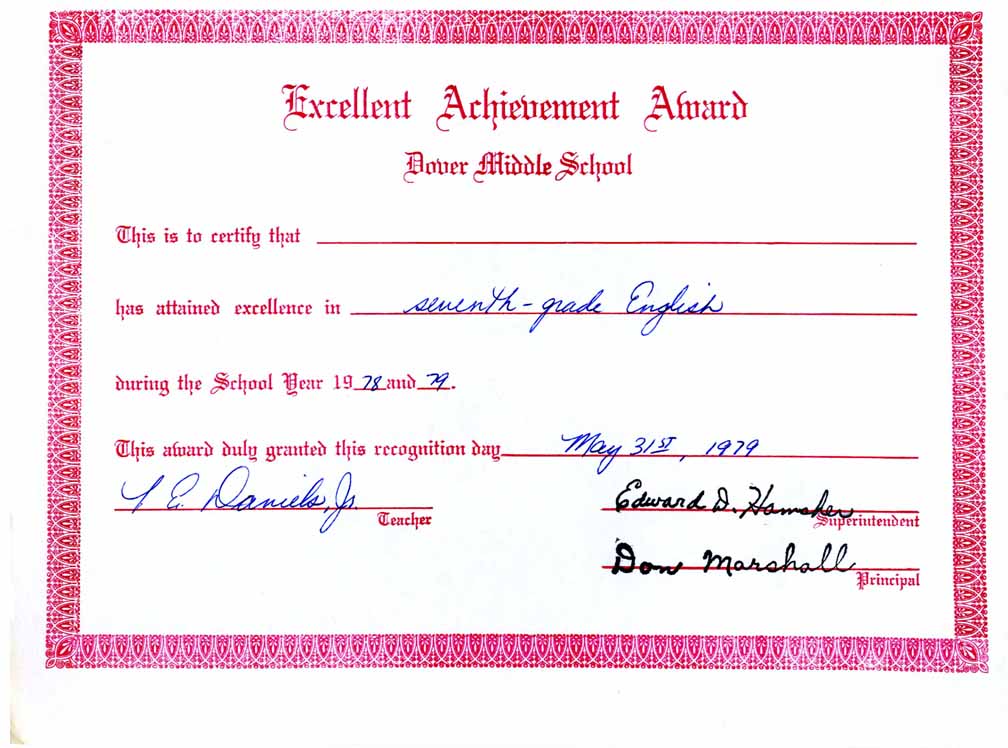 Excellent Achievement Award
Dover Middle School
This is to certify that
has attained excellence in seventh-grade English
during the School Year 1978 and 79.
This award duly granted this recognition day May 31st, 1979
E. Daniels, Jr.
Teacher
Edward D. Hamsher
Superintendent
Don Marshall
Principal